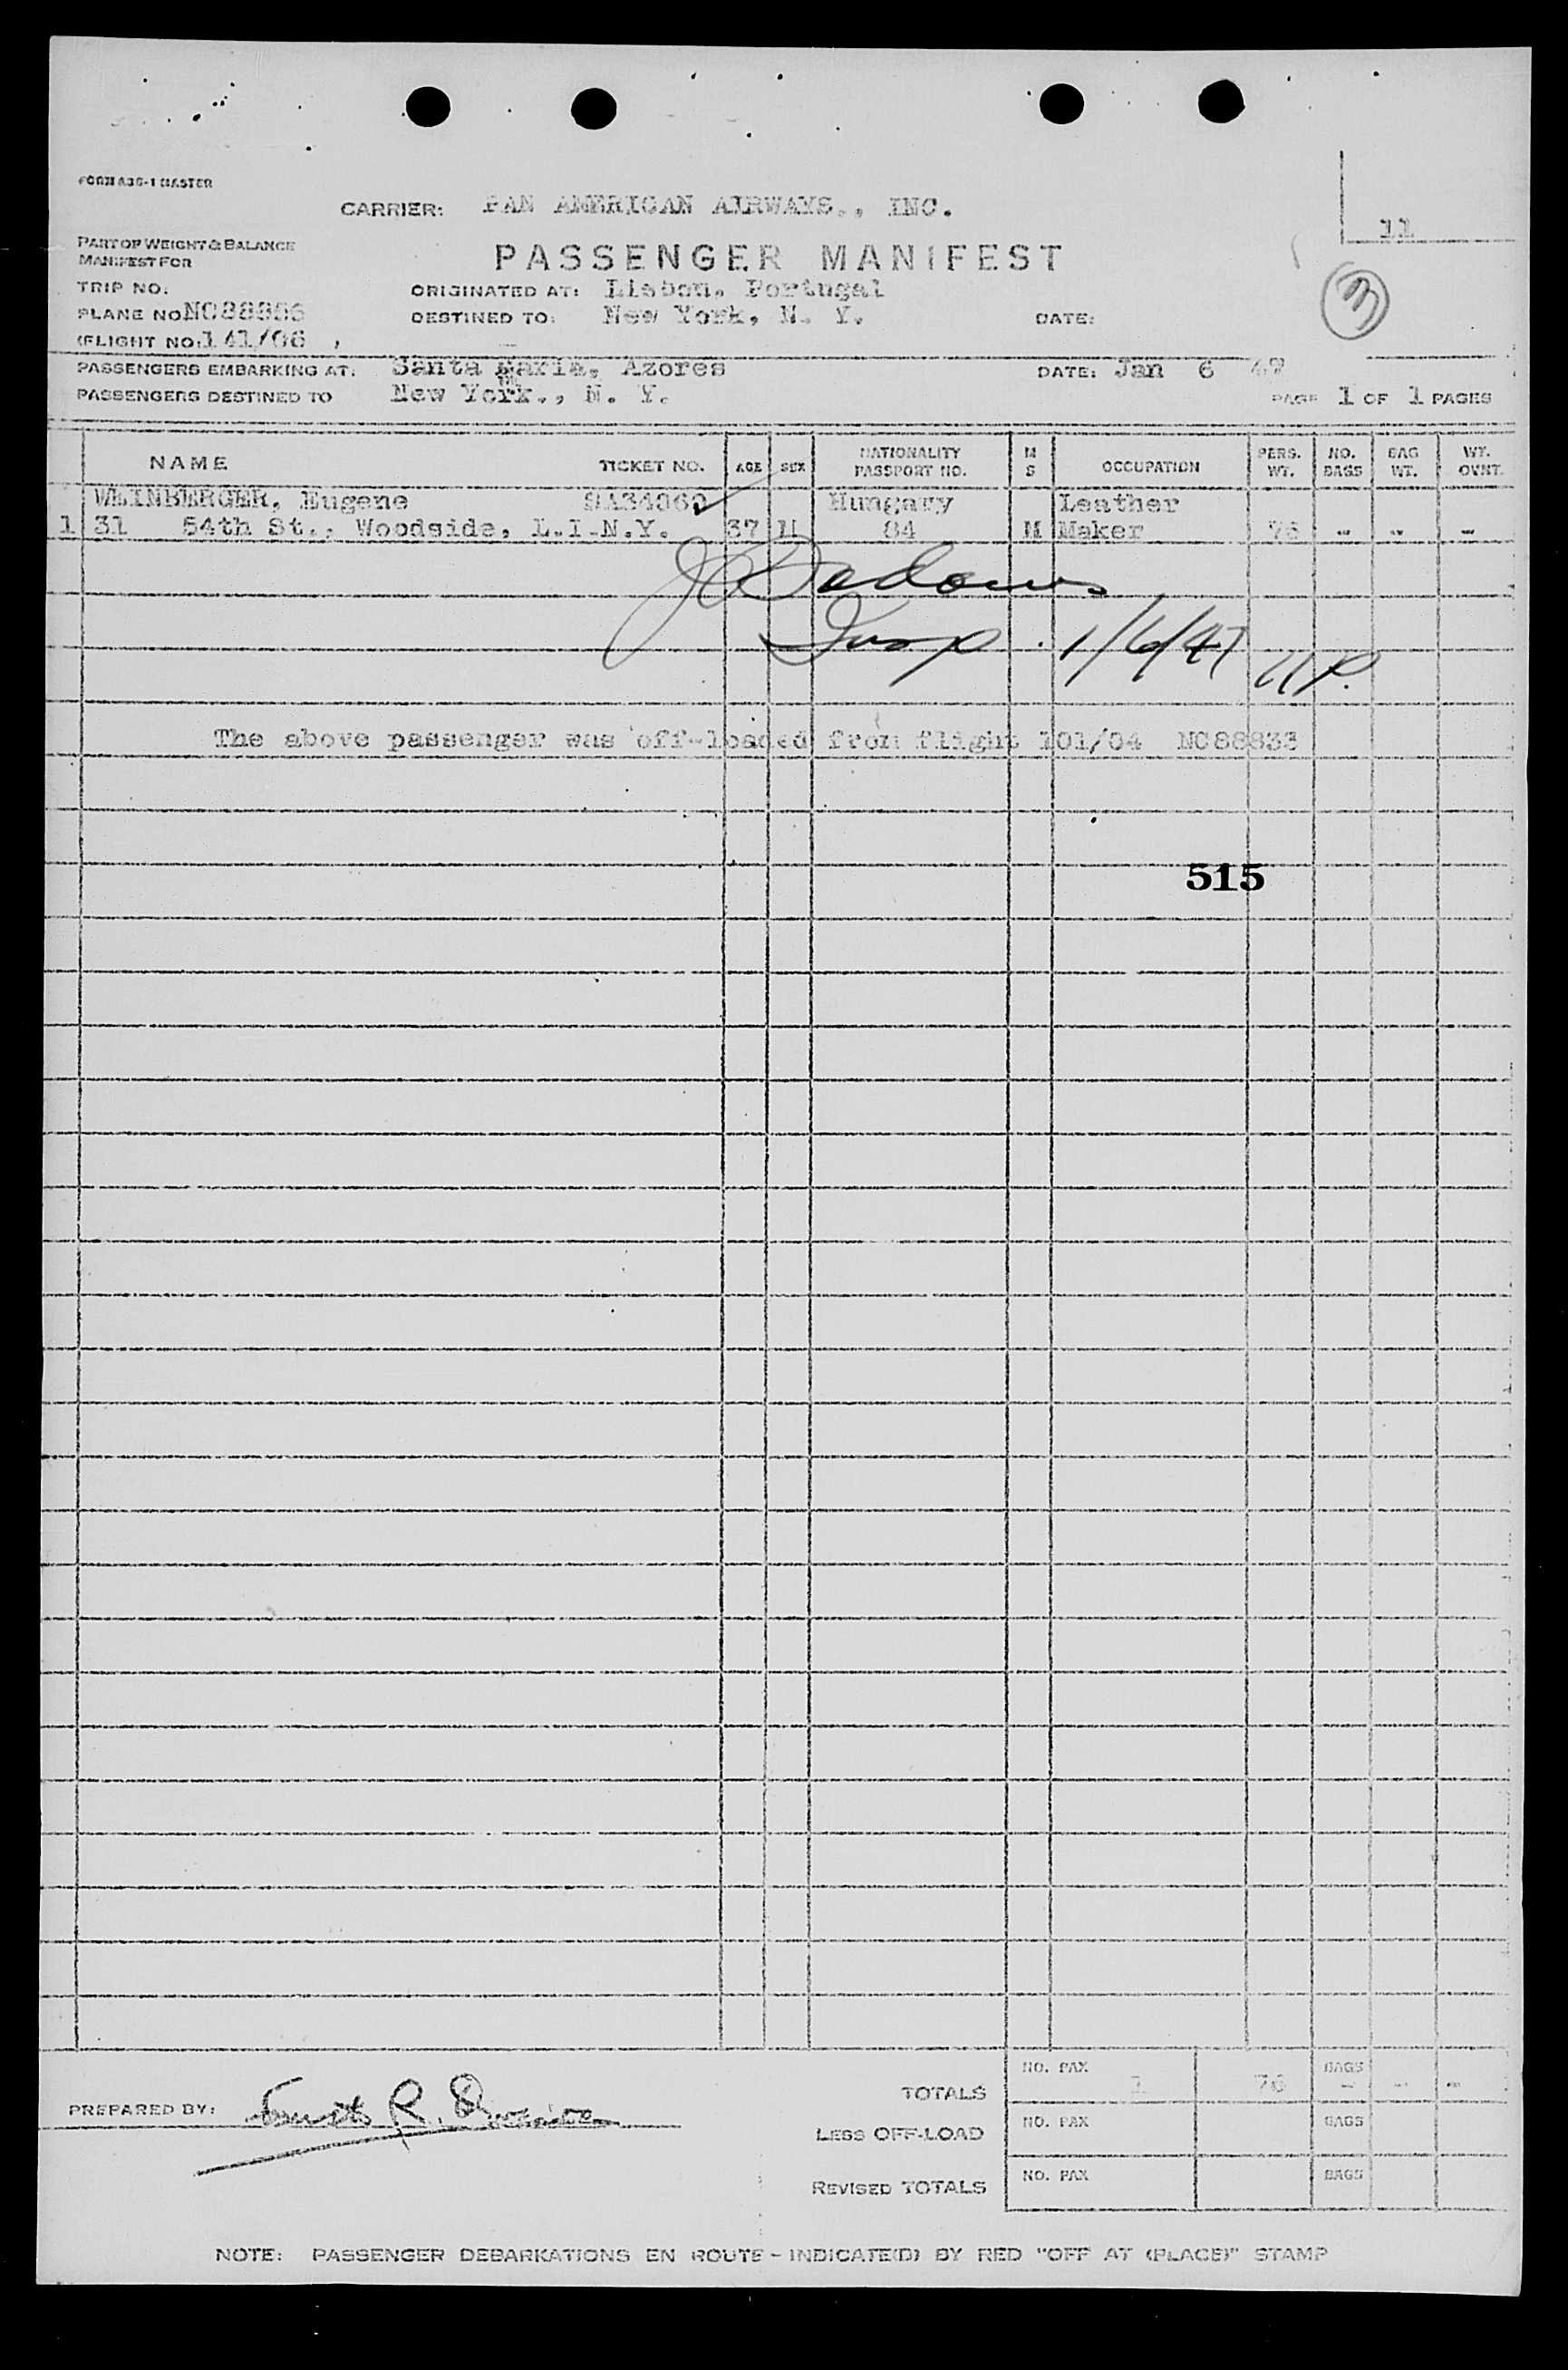 FORM A36-1 MASTER
CARRIER: PAN AMERICAN AIRWAYS., INC.
11
PART OF WEIGHT & BALANCE
MANIFEST FOR
PASSENGER MANIFEST
3
TRIP NO.
ORIGINATED AT: Lisbon, Portugal
PLANE NO. NC88856
DESTINED TO: New York, N. Y.
DATE:
(FLIGHT NO. 141/06
PASSENGERS EMBARKING AT: Santa Maria, Azores
DATE: Jan 6 47
PASSENGERS DESTINED TO New York., N. Y.
PAGE 1 OF 1 PAGES
NAME TICKET NO. AGE SEX NATIONALITY PASSPORT NO. M S OCCUPATION PERS. WT. NO. BAGS BAG WT. WT. OVNT.
WEINBERGER, Eugene 9A34060 Hungary Leather
1 31 54th St., Woodside, L.I.N.Y. 37 M 84 M Maker 76 - - -
Insp. 1/6/47
The above passenger was off-loaded from flight 101/04 NC88833
515
TOTALS NO. PAX 1 76 BAGS - - -
PREPARED BY:
LESS OFF-LOAD NO. PAX BAGS
REVISED TOTALS NO. PAX BAGS
NOTE: PASSENGER DEBARKATIONS EN ROUTE - INDICATE(D) BY RED "OFF AT (PLACE)" STAMP